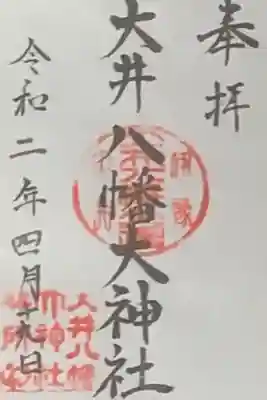 奉拝
大井八幡大神社
令和二年四月十九日
大井八幡
神社